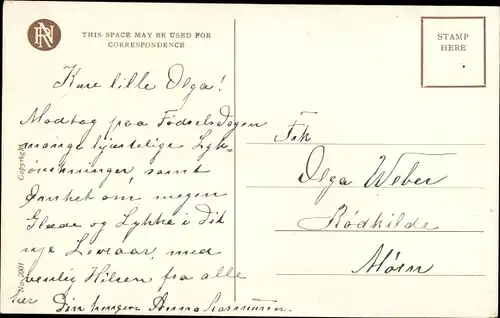 THIS SPACE MAY BE USED FOR
CORRESPONDENCE
STAMP
HERE
Kære lille Olga!
Modtag paa Fødselsdagen
mange hjertelige Lyk-
ønskninger, samt
Ønsket om megen
Glæde og Lykke i dit
nye Leveaar, med
venlig Hilsen fra alle
her Din Anna Rasmussen.
Frk
Olga Weber
Rödkilde
Møen
Copyright
No. 2001